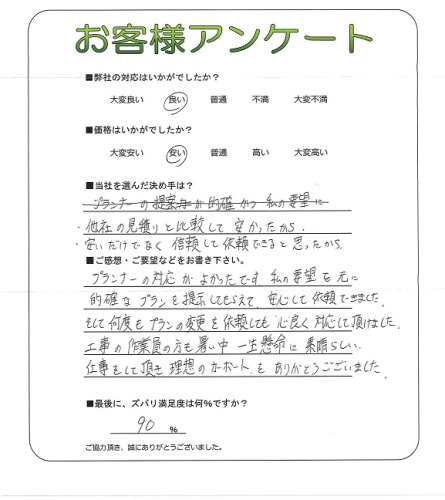 お客様アンケート
■弊社の対応はいかがでしたか?
大変良い 良い 普通 不満 大変不満
■価格はいかがでしたか?
大変安い 安い 普通 高い 大変高い
■当社を選んだ決め手は?
プランナーの提案力が的確かつ 私の要望に
・他社の見積りと比較して 安かったから.
・安いだけでなく 信頼して依頼できると思ったから.
■ご感想・ご要望などをお書き下さい。
プランナーの対応がよかったです 私の要望を元に
的確なプランを提示してもらえて、安心して依頼できました.
そして何度もプランの変更を依頼しても 心良く対応して頂けました.
工事の作業員の方も暑い中 一生懸命に 素晴らしい.
仕事をして頂き 理想のカーポートを ありがとうございました.
■最後に、ズバリ満足度は何%ですか?
90 %
ご協力頂き、誠にありがとうございました。